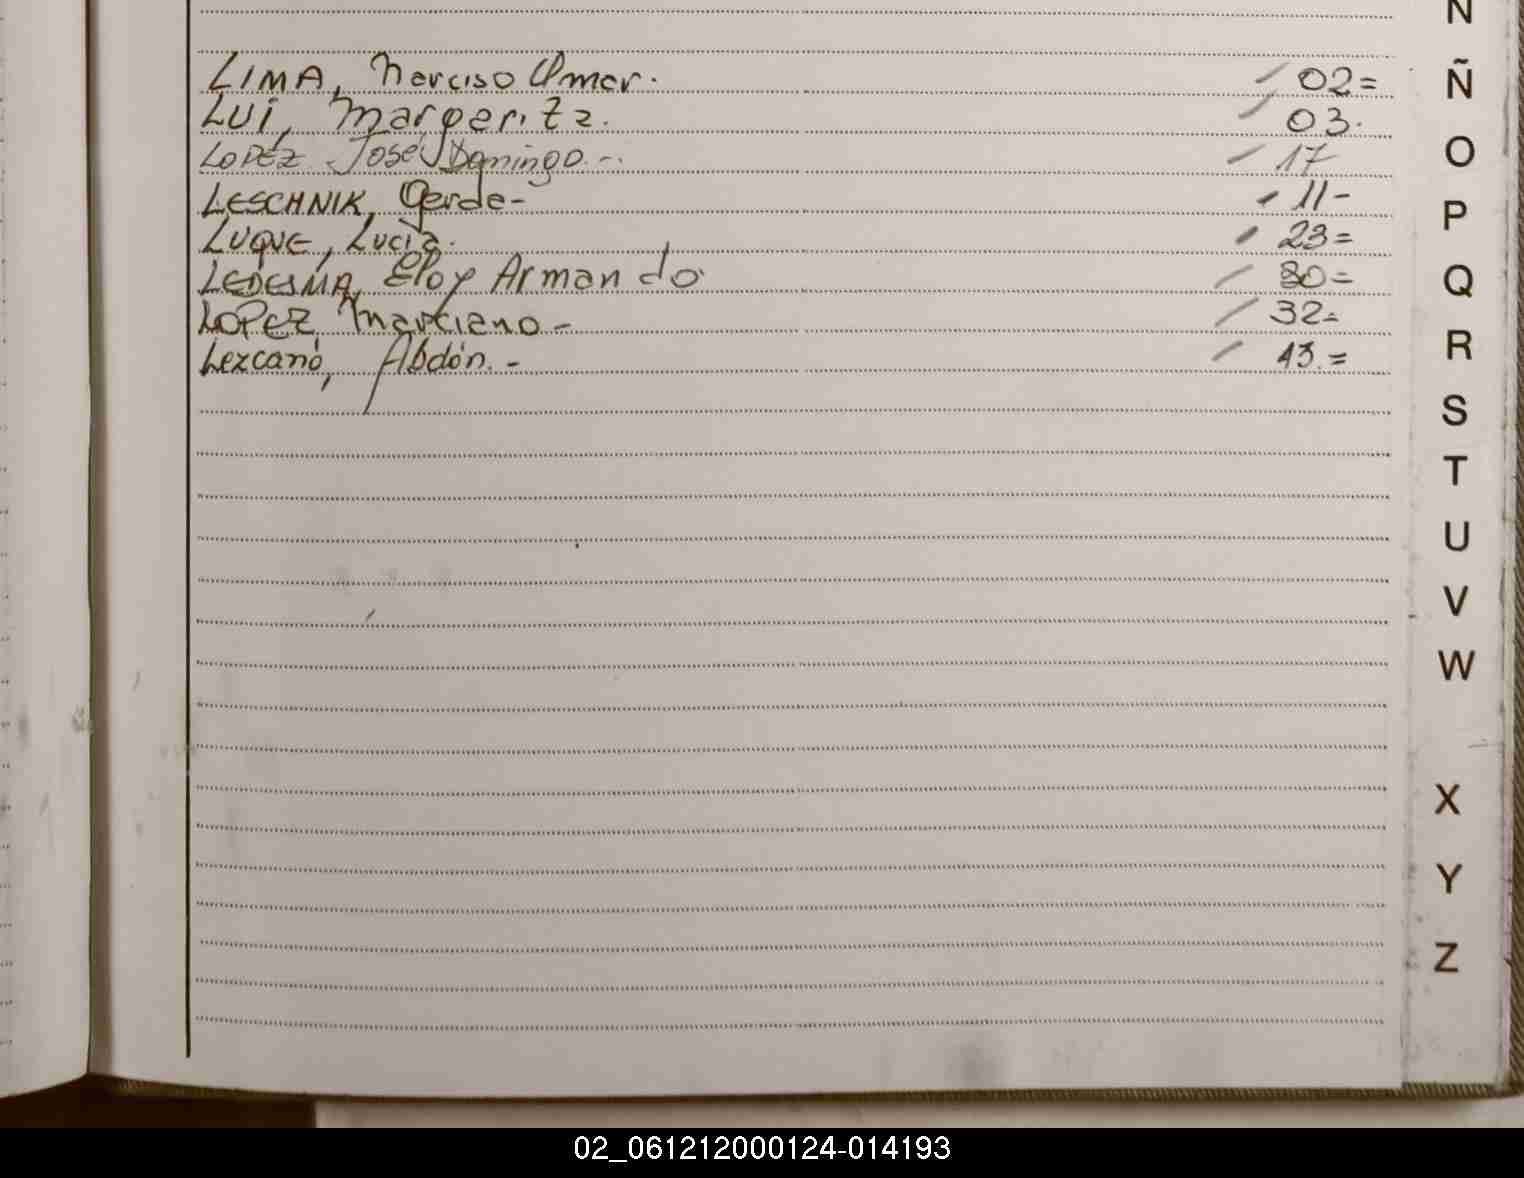 N
LIMA, Narciso Omar. 02=
Ñ
LUÍ, Margarita. 03.
LOPEZ José Domingo.- 17
O
LESCHNIK, Gerda- 11-
P
LUQUE, Lucía. 23=
LEDESMA, Eloy Armando 30=
Q
LOPEZ Marciano- 32=
Lezcano, Abdón.- 43.=
R
S
T
U
V
W
X
Y
Z
02_061212000124-014193